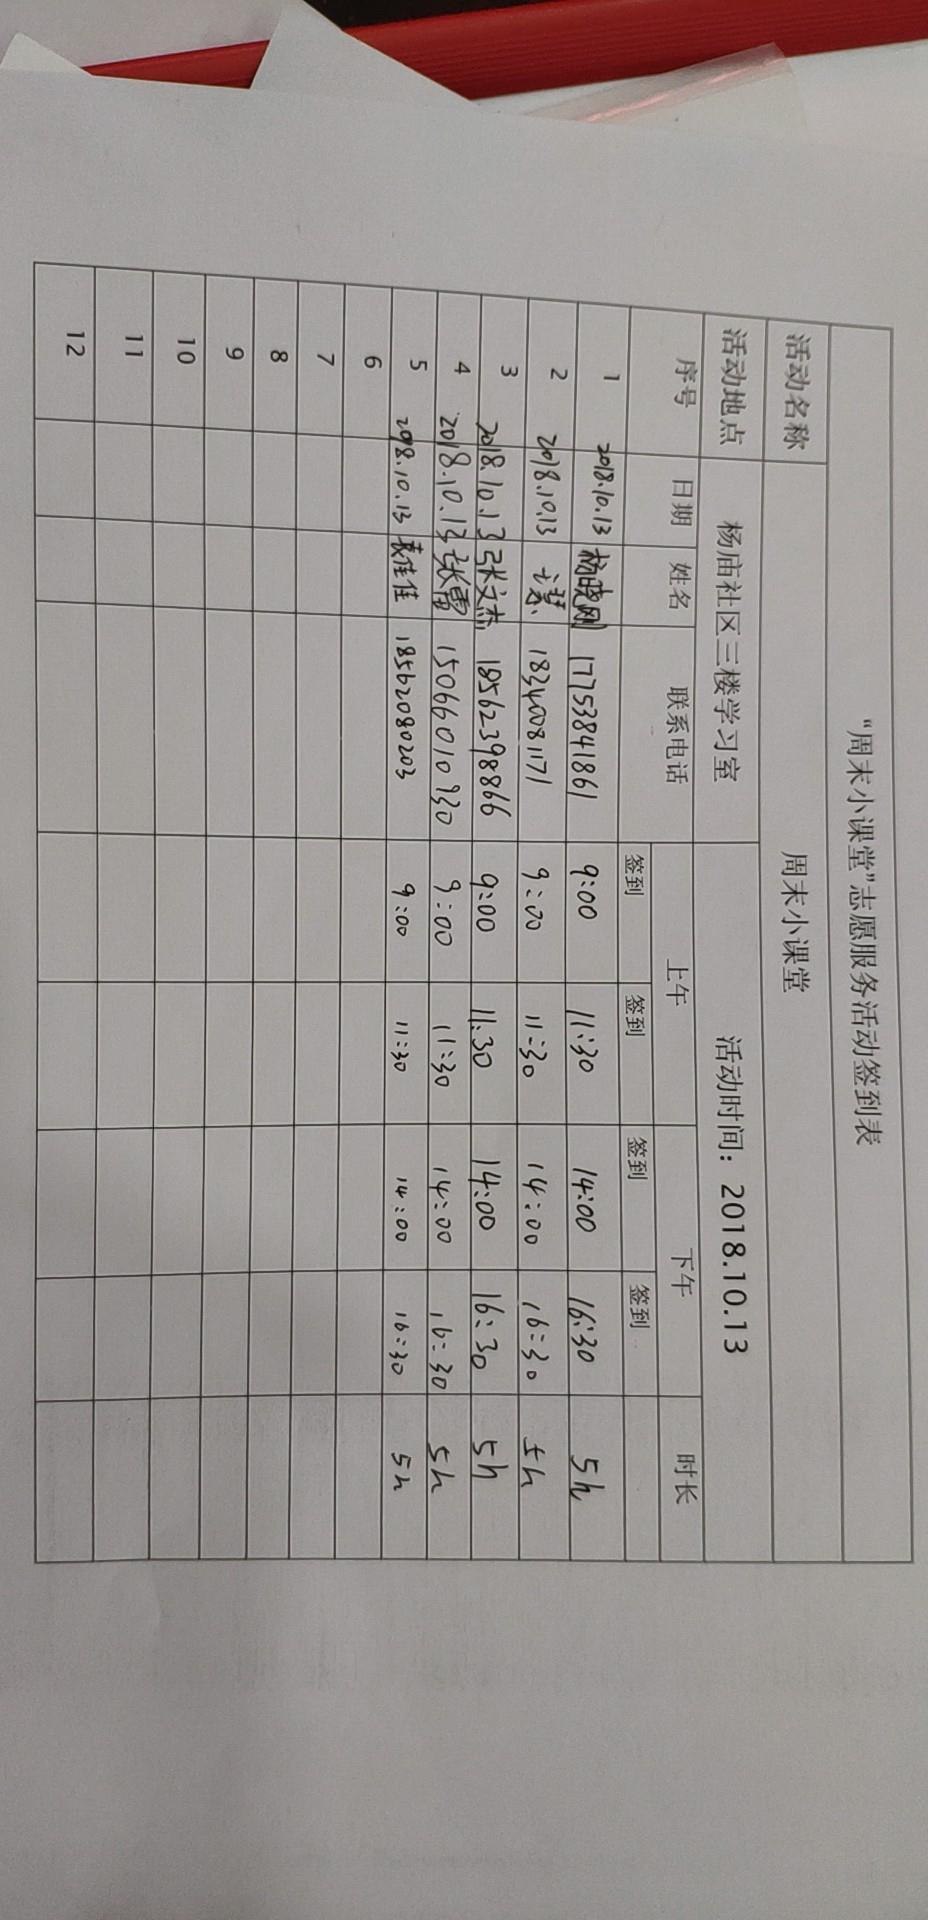 “周末小课堂”志愿服务活动签到表
活动名称 周末小课堂
活动地点 杨庙社区三楼学习室 活动时间：2018.10.13
序号 日期 姓名 联系电话 上午 下午 时长
签到 签到 签到 签到
1 2018.10.13 杨晓刚 17753841861 9:00 11:30 14:00 16:30 5h
2 2018.10.13 18340081171 9:00 11:30 14:00 16:30 5h
3 2018.10.13 张文杰 18562398866 9:00 11:30 14:00 16:30 5h
4 2018.10.13 张雷 15066010930 9:00 11:30 14:00 16:30 5h
5 2018.10.13 袁佳佳 18562080203 9:00 11:30 14:00 16:30 5h
6
7
8
9
10
11
12